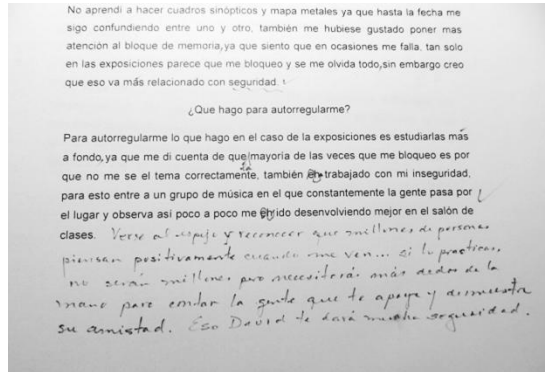 No aprendí a hacer cuadros sinópticos y mapa metales ya que hasta la fecha me
sigo confundiendo entre uno y otro, también me hubiese gustado poner mas
atención al bloque de memoria, ya que siento que en ocasiones me falla, tan solo
en las exposiciones parece que me bloqueo y se me olvida todo,sin embargo creo
que eso va más relacionado con seguridad.
¿Que hago para autorregularme?
Para autorregularme lo que hago en el caso de la exposiciones es estudiarlas más
a fondo, ya que me di cuenta de que mayoría de las veces que me bloqueo es por
la
que no me se el tema correctamente, también en trabajado con mi inseguridad,
para esto entre a un grupo de música en el que constantemente la gente pasa por
el lugar y observa así poco a poco me en ido desenvolviendo mejor en el salón de
clases. Verse al espejo y reconocer que millones de personas
piensan positivamente cuando me ven... si lo practicas,
no serán millones pero necesitarás más dedos de la
mano para contar la gente que te apoya y demuestra
su amistad. Eso David te dará mucha seguridad.